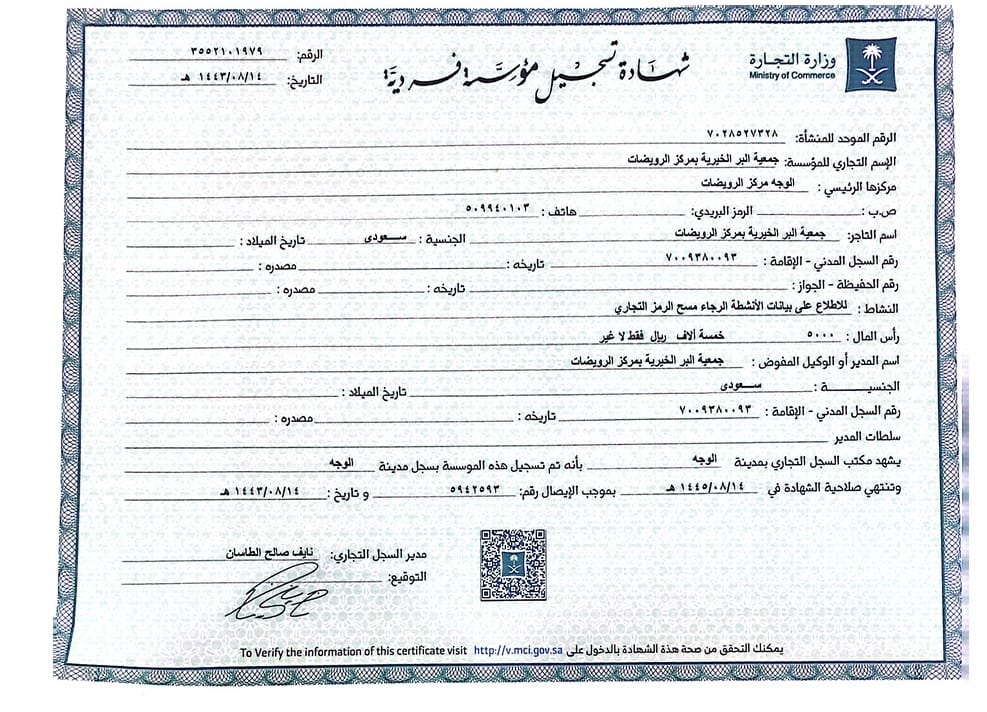 وزارة التجارة
Ministry of Commerce
شهادة تسجيل مؤسسة فردية
الرقم: ٣٥٥٢١٠١٩٧٩
التاريخ: ١٤٤٣/٠٨/١٤ هـ
الرقم الموحد للمنشأة: ٧٠٢٨٥٢٧٣٢٨
الإسم التجاري للمؤسسة: جمعية البر الخيرية بمركز الرويضات
مركزها الرئيسي : الوجه مركز الرويضات
ص.ب : الرمز البريدي: هاتف : ٥٠٩٩٤٠١٠٣
اسم التاجر: جمعية البر الخيرية بمركز الرويضات الجنسية : سـعودى تاريخ الميلاد :
رقم السجل المدني - الإقامة : ٧٠٠٩٣٨٠٠٩٣ تاريخه : مصدره :
رقم الحفيظة - الجواز : تاريخه : مصدره :
النشاط : للاطلاع على بيانات الأنشطة الرجاء مسح الرمز التجاري
رأس المال : ٥٠٠٠ خمسة ألاف ريال فقط لا غير
اسم المدير أو الوكيل المفوض : جمعية البر الخيرية بمركز الرويضات
الجنسيــــــة : سـعودى تاريخ الميلاد :
رقم السجل المدني - الإقامة : ٧٠٠٩٣٨٠٠٩٣ تاريخه : مصدره :
سلطات المدير
يشهد مكتب السجل التجاري بمدينة الوجه بأنه تم تسجيل هذه الموسسة بسجل مدينة الوجه
وتنتهي صلاحية الشهادة في ١٤٤٥/٠٨/١٤ هـ بموجب الإيصال رقم: ٥٩٤٢٥٩٣ و تاريخ : ١٤٤٣/٠٨/١٤ هـ
مدير السجل التجاري: نايف صالح الطاسان
التوقيع:
يمكنك التحقق من صحة هذة الشهادة بالدخول على To Verify the information of this certificate visit http://v.mci.gov.sa